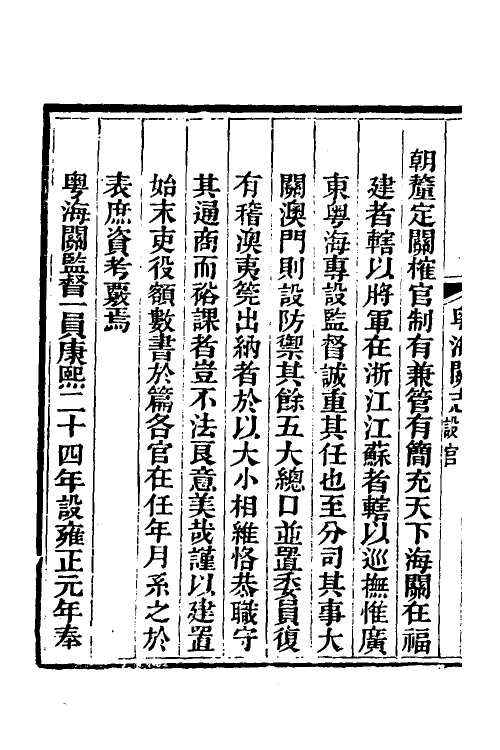 粵海關志 設官
朝釐定關榷官制有兼管有簡充天下海關在福
建者轄以將軍在浙江江蘇者轄以巡撫惟廣
東粵海專設監督誠重其任也至分司其事大
關澳門則設防禦其餘五大總口並置委員復
有稽澳夷筦出納者於以大小相維恪恭職守
其通商而裕課者豈不法良意美哉謹以建置
始末吏役額數書於篇各官在任年月系之於
表庶資考覈焉
粵海關監督一員康熙二十四年設雍正元年奉